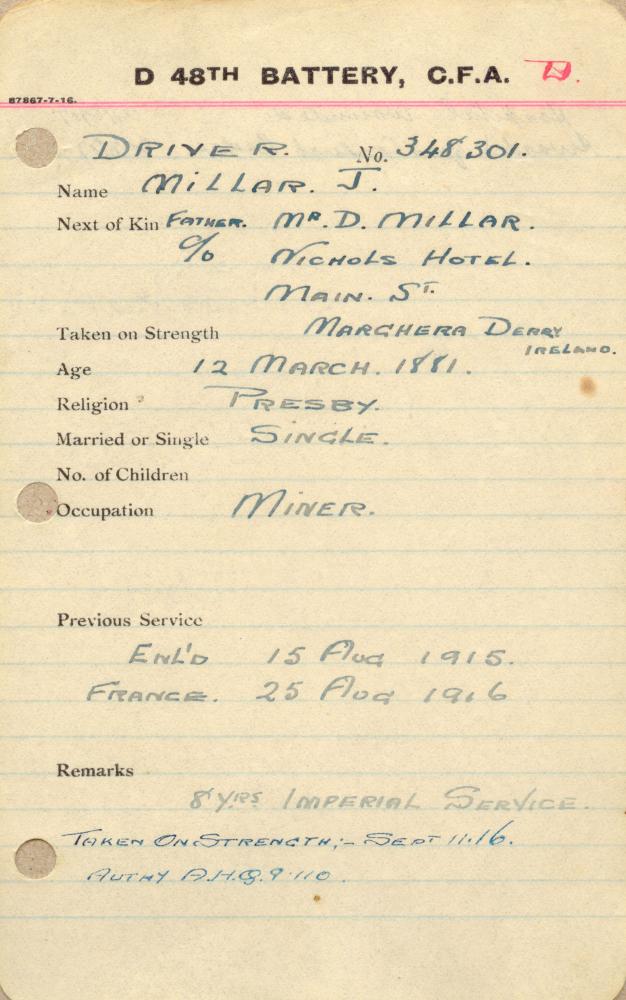 D 48TH BATTERY, C.F.A. D.
87867-7-16.
DRIVER. No. 348,301.
Name MILLAR. J.
Next of Kin FATHER. MR. D. MILLAR.
c/o NICHOLS HOTEL.
MAIN. ST.
Taken on Strength MARGHERA DERRY
IRELAND.
Age 12 MARCH. 1881.
Religion PRESBY.
Married or Single SINGLE.
No. of Children
Occupation MINER.
Previous Service
ENL'D 15 AUG 1915.
FRANCE. 25 AUG 1916
Remarks
8 YRS IMPERIAL SERVICE.
TAKEN ON STRENGTH;- SEPT 11.16.
AUTHY A.H.Q. 9.110.